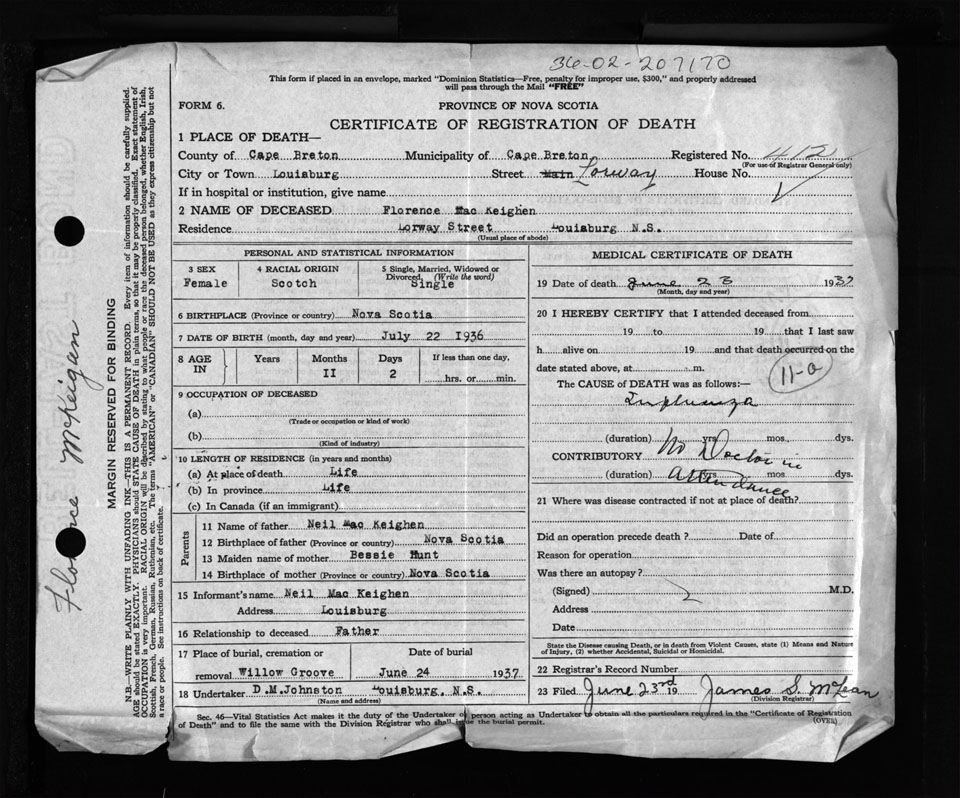 36-02-207170
This form if placed in an envelope, marked "Dominion Statistics—Free, penalty for improper use, $300," and properly addressed
will pass through the Mail "FREE"
FORM 6. PROVINCE OF NOVA SCOTIA
CERTIFICATE OF REGISTRATION OF DEATH
1 PLACE OF DEATH—
County of Cape Breton Municipality of Cape Breton Registered No. 412
(For use of Registrar General only)
City or Town Louisburg Street Main Lorway House No.
If in hospital or institution, give name
2 NAME OF DECEASED Florence Mac Keighen
Residence Lorway Street Louisburg N.S.
(Usual place of abode)
PERSONAL AND STATISTICAL INFORMATION
3 SEX 4 RACIAL ORIGIN 5 Single, Married, Widowed or
Divorced, (Write the word)
Female Scotch Single
6 BIRTHPLACE (Province or country) Nova Scotia
7 DATE OF BIRTH (month, day and year) July 22 1936
8 AGE IN Years Months Days If less than one day,
II 2 hrs. or min.
9 OCCUPATION OF DECEASED
(a)
(Trade or occupation or kind of work)
(b)
(Kind of industry)
10 LENGTH OF RESIDENCE (in years and months)
(a) At place of death Life
(b) In province Life
(c) In Canada (if an immigrant)
Parents
11 Name of father Neil Mac Keighen
12 Birthplace of father (Province or country) Nova Scotia
13 Maiden name of mother Bessie Hunt
14 Birthplace of mother (Province or country) Nova Scotia
15 Informant's name Neil Mac Keighen
Address Louisburg
16 Relationship to deceased Father
17 Place of burial, cremation or Date of burial
removal Willow Groove June 24 1937
18 Undertaker D.M.Johnston Louisburg, N.S.
(Name and address)
MEDICAL CERTIFICATE OF DEATH
19 Date of death June 23 1937
(Month, day and year)
20 I HEREBY CERTIFY that I attended deceased from
19 to 19 that I last saw
h alive on 19 and that death occurred on the
date stated above, at m.
11-a
The CAUSE OF DEATH was as follows:—
Influenza
(duration) yrs. mos. dys.
CONTRIBUTORY No Doctor in
(duration) yrs. mos. dys.
Attendance
21 Where was disease contracted if not at place of death?
Did an operation precede death? Date of
Reason for operation
Was there an autopsy?
(Signed) M.D.
Address
Date
State the Disease causing Death, or in death from Violent Causes, state (1) Means and Nature
of Injury, (2) whether Accidental, Suicidal or Homicidal.
22 Registrar's Record Number
23 Filed June 23rd 19 James S. McLean
(Division Registrar)
Sec. 46—Vital Statistics Act makes it the duty of the Undertaker or person acting as Undertaker to obtain all the particulars required in the "Certificate of Registration
of Death" and to file the same with the Division Registrar who shall issue the burial permit. (OVER)
Florence McKeigan
MARGIN RESERVED FOR BINDING
N.B.—WRITE PLAINLY WITH UNFADING INK—THIS IS A PERMANENT RECORD. Every item of information should be carefully supplied.
AGE should be stated EXACTLY. PHYSICIANS should STATE CAUSE OF DEATH in plain terms, so that it may be properly classified. Exact statement of
OCCUPATION is very important. RACIAL ORIGIN will be described by stating to what people or race the deceased person belonged, whether English, Irish,
Scottish, French, German, Russian, Ruthenian, etc. The terms "AMERICAN" or "CANADIAN" SHOULD NOT BE USED as they express citizenship but not
a race or people. See instructions on back of certificate.